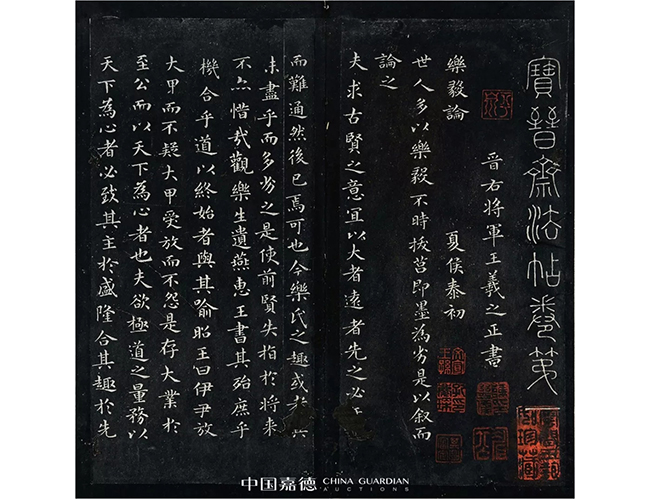 寶晉齋法帖卷第一
晉右將軍王羲之正書
樂毅論 夏侯泰初
世人多以樂毅不時拔莒即墨為劣是以叙而
論之
夫求古賢之意宜以大者遠者先之必
而難通然後已焉可也今樂氏之趣或者其
未盡乎而多劣之是使前賢失指於將來
不亦惜哉觀樂生遺燕惠王書其殆庶乎
機合乎道以終始者與其喻昭王曰伊尹放
大甲而不疑大甲受放而不怨是存大業於
至公而以天下為心者也夫欲極道之量務以
天下為心者必致其主於盛隆合其趣於先
中国嘉德 CHINA GUARDIAN
AUCTIONS